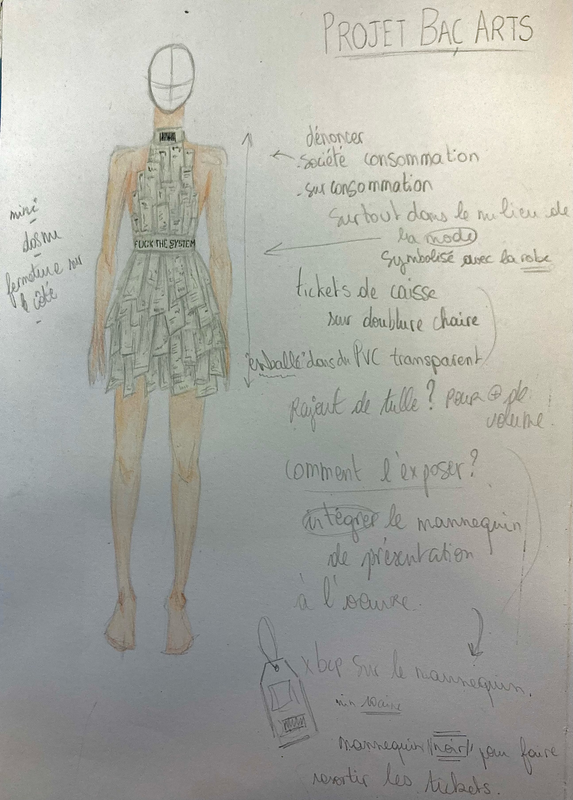 PROJET BAC ARTS
dénoncer
société consommation
- surconsommation
surtout dans le milieu de
la mode
symbolisé avec la robe
mini
dos nu
fermeture sur
le côté
FUCK THE SYSTEM
tickets de caisse
sur doublure chaire
"emballé" dans du PVC transparent
Rajout de tulle? Pour ⊕ de
volume.
comment l'exposer?
intégrer le mannequin
de présentation
à l'oeuvre.
x bcp sur le mannequin.
mannequin "noir" pour faire
ressortir les tickets.